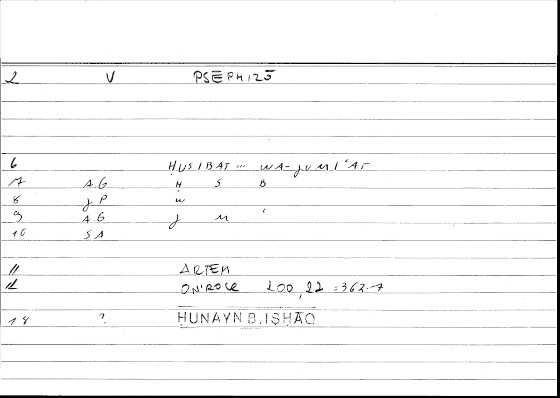 2 V PSĒPHIZŌ
6 HUSIBAT ... WA-JUMI'AT
7 A.G H S B
8 JP W
9 A.G J M '
10 SA
11 ARTEM
12 ON'ROCR 200,22 = 362.7
14 ? HUNAYN B.ISHAQ